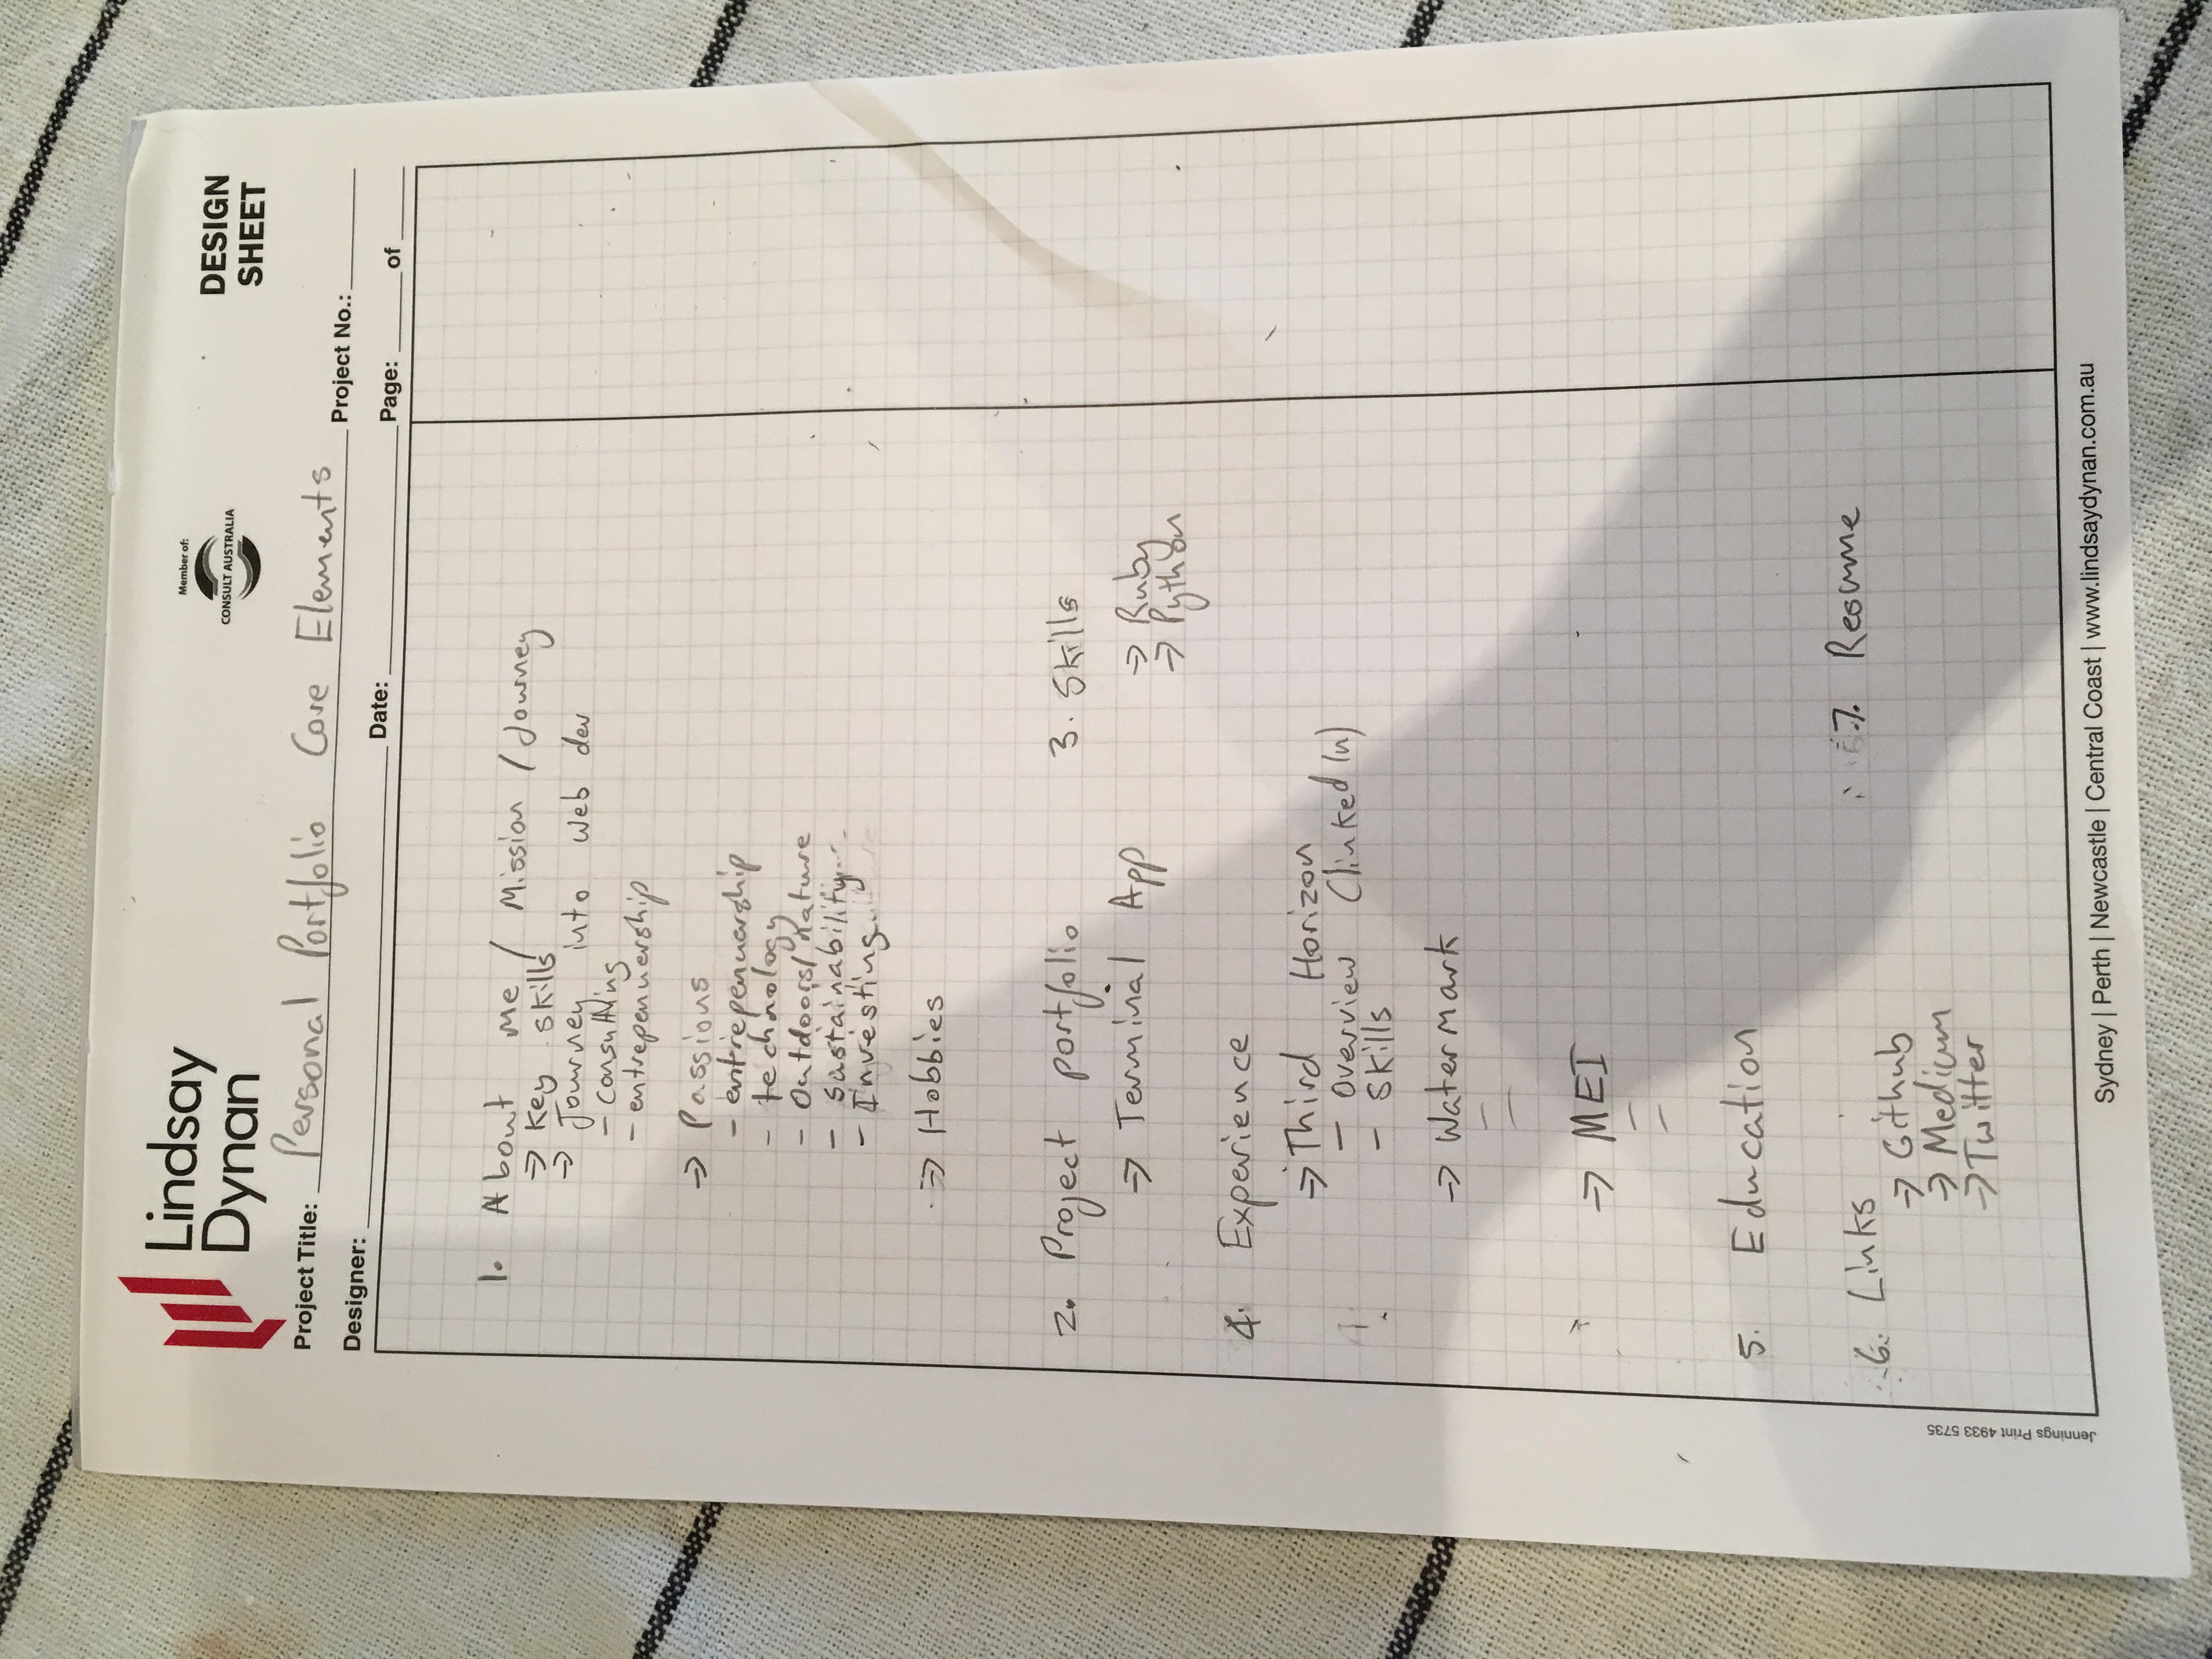 Lindsay
Dynan
Member of:
CONSULT AUSTRALIA
DESIGN
SHEET
Project Title: Personal Portfolio Core Elements Project No.:
Designer: Date: Page: of
1. About me / Mission / Journey
=> Key skills
=> Journey into web dev
- consulting
- entrepenuership
=> Passions
- entrepenuership
- technology
- Outdoors/nature
- sustainability
- Investing
=> Hobbies
2. Project portfolio
=> Terminal App
3. Skills
=> Ruby
=> Python
4. Experience
=> Third Horizon
- Overview (linked in)
- skills
=> Watermark
-
-
=> MEI
-
-
5. Education
6. Links
=> Github
=> Medium
=> Twitter
7. Resume
Sydney | Perth | Newcastle | Central Coast | www.lindsaydynan.com.au
Jennings Print 4933 5735